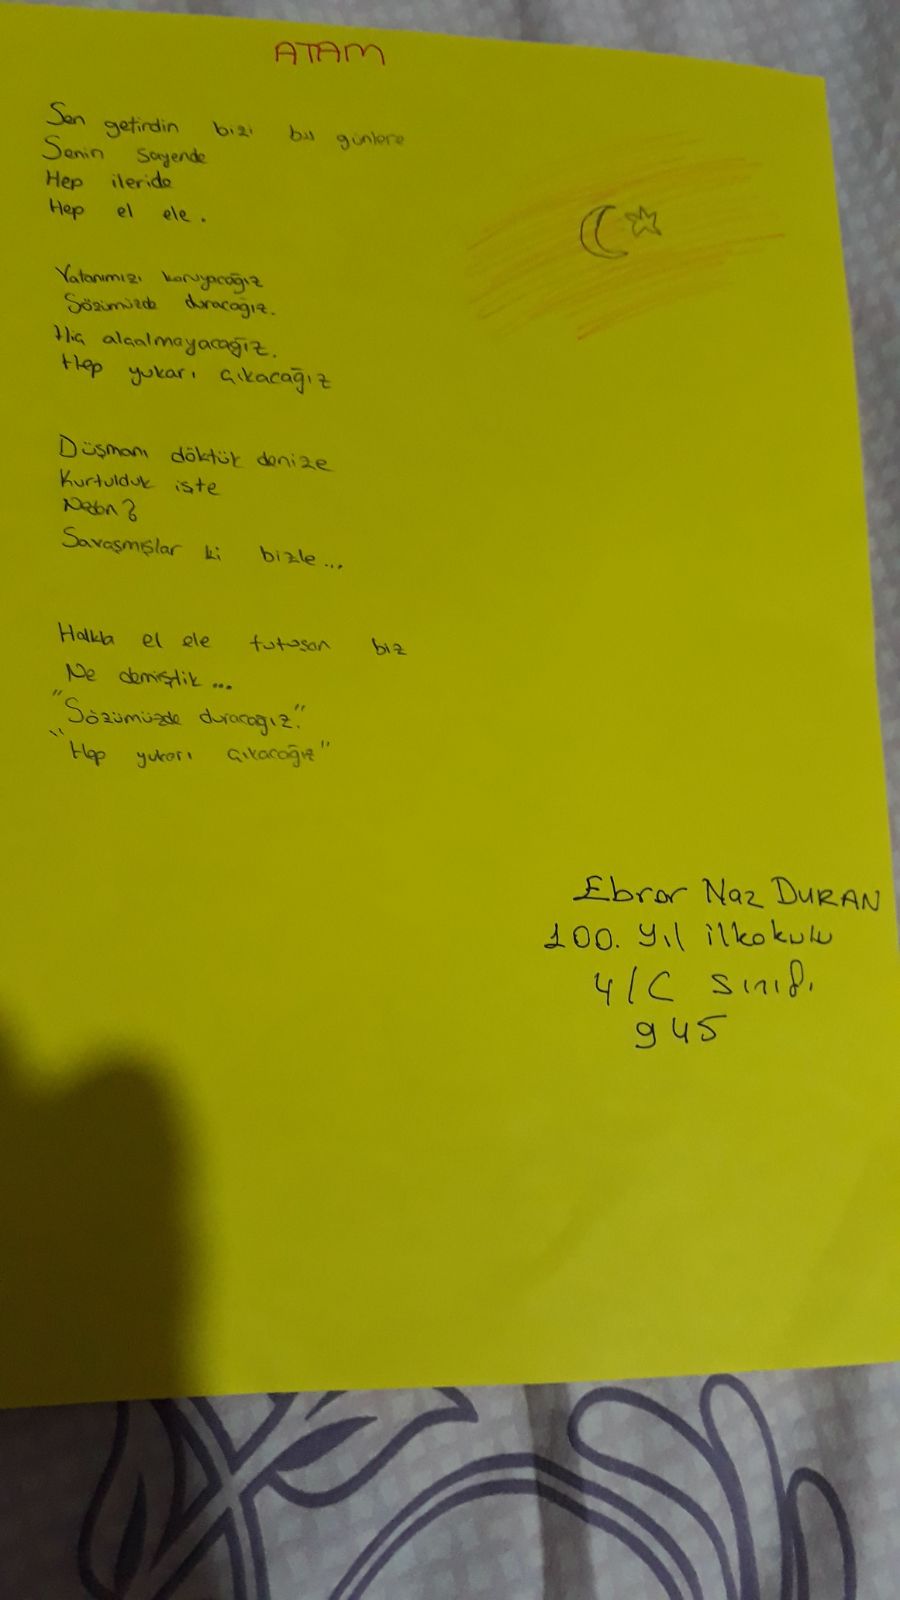 ATAM
Sen getirdin bizi bu günlere
Senin sayende
Hep ileride
Hep el ele.
Vatanımızı koruyacağız
Sözümüzde duracağız.
Hiç alçalmayacağız.
Hep yukarı çıkacağız
Düşmanı döktük denize
Kurtulduk işte
Neden?
Savaşmışlar ki bizle...
Halkla el ele tutuşan biz
Ne demiştik...
"Sözümüzde duracağız."
"Hep yukarı çıkacağız"
Ebrar Naz DURAN
100. Yıl ilkokulu
4/C sınıfı
945